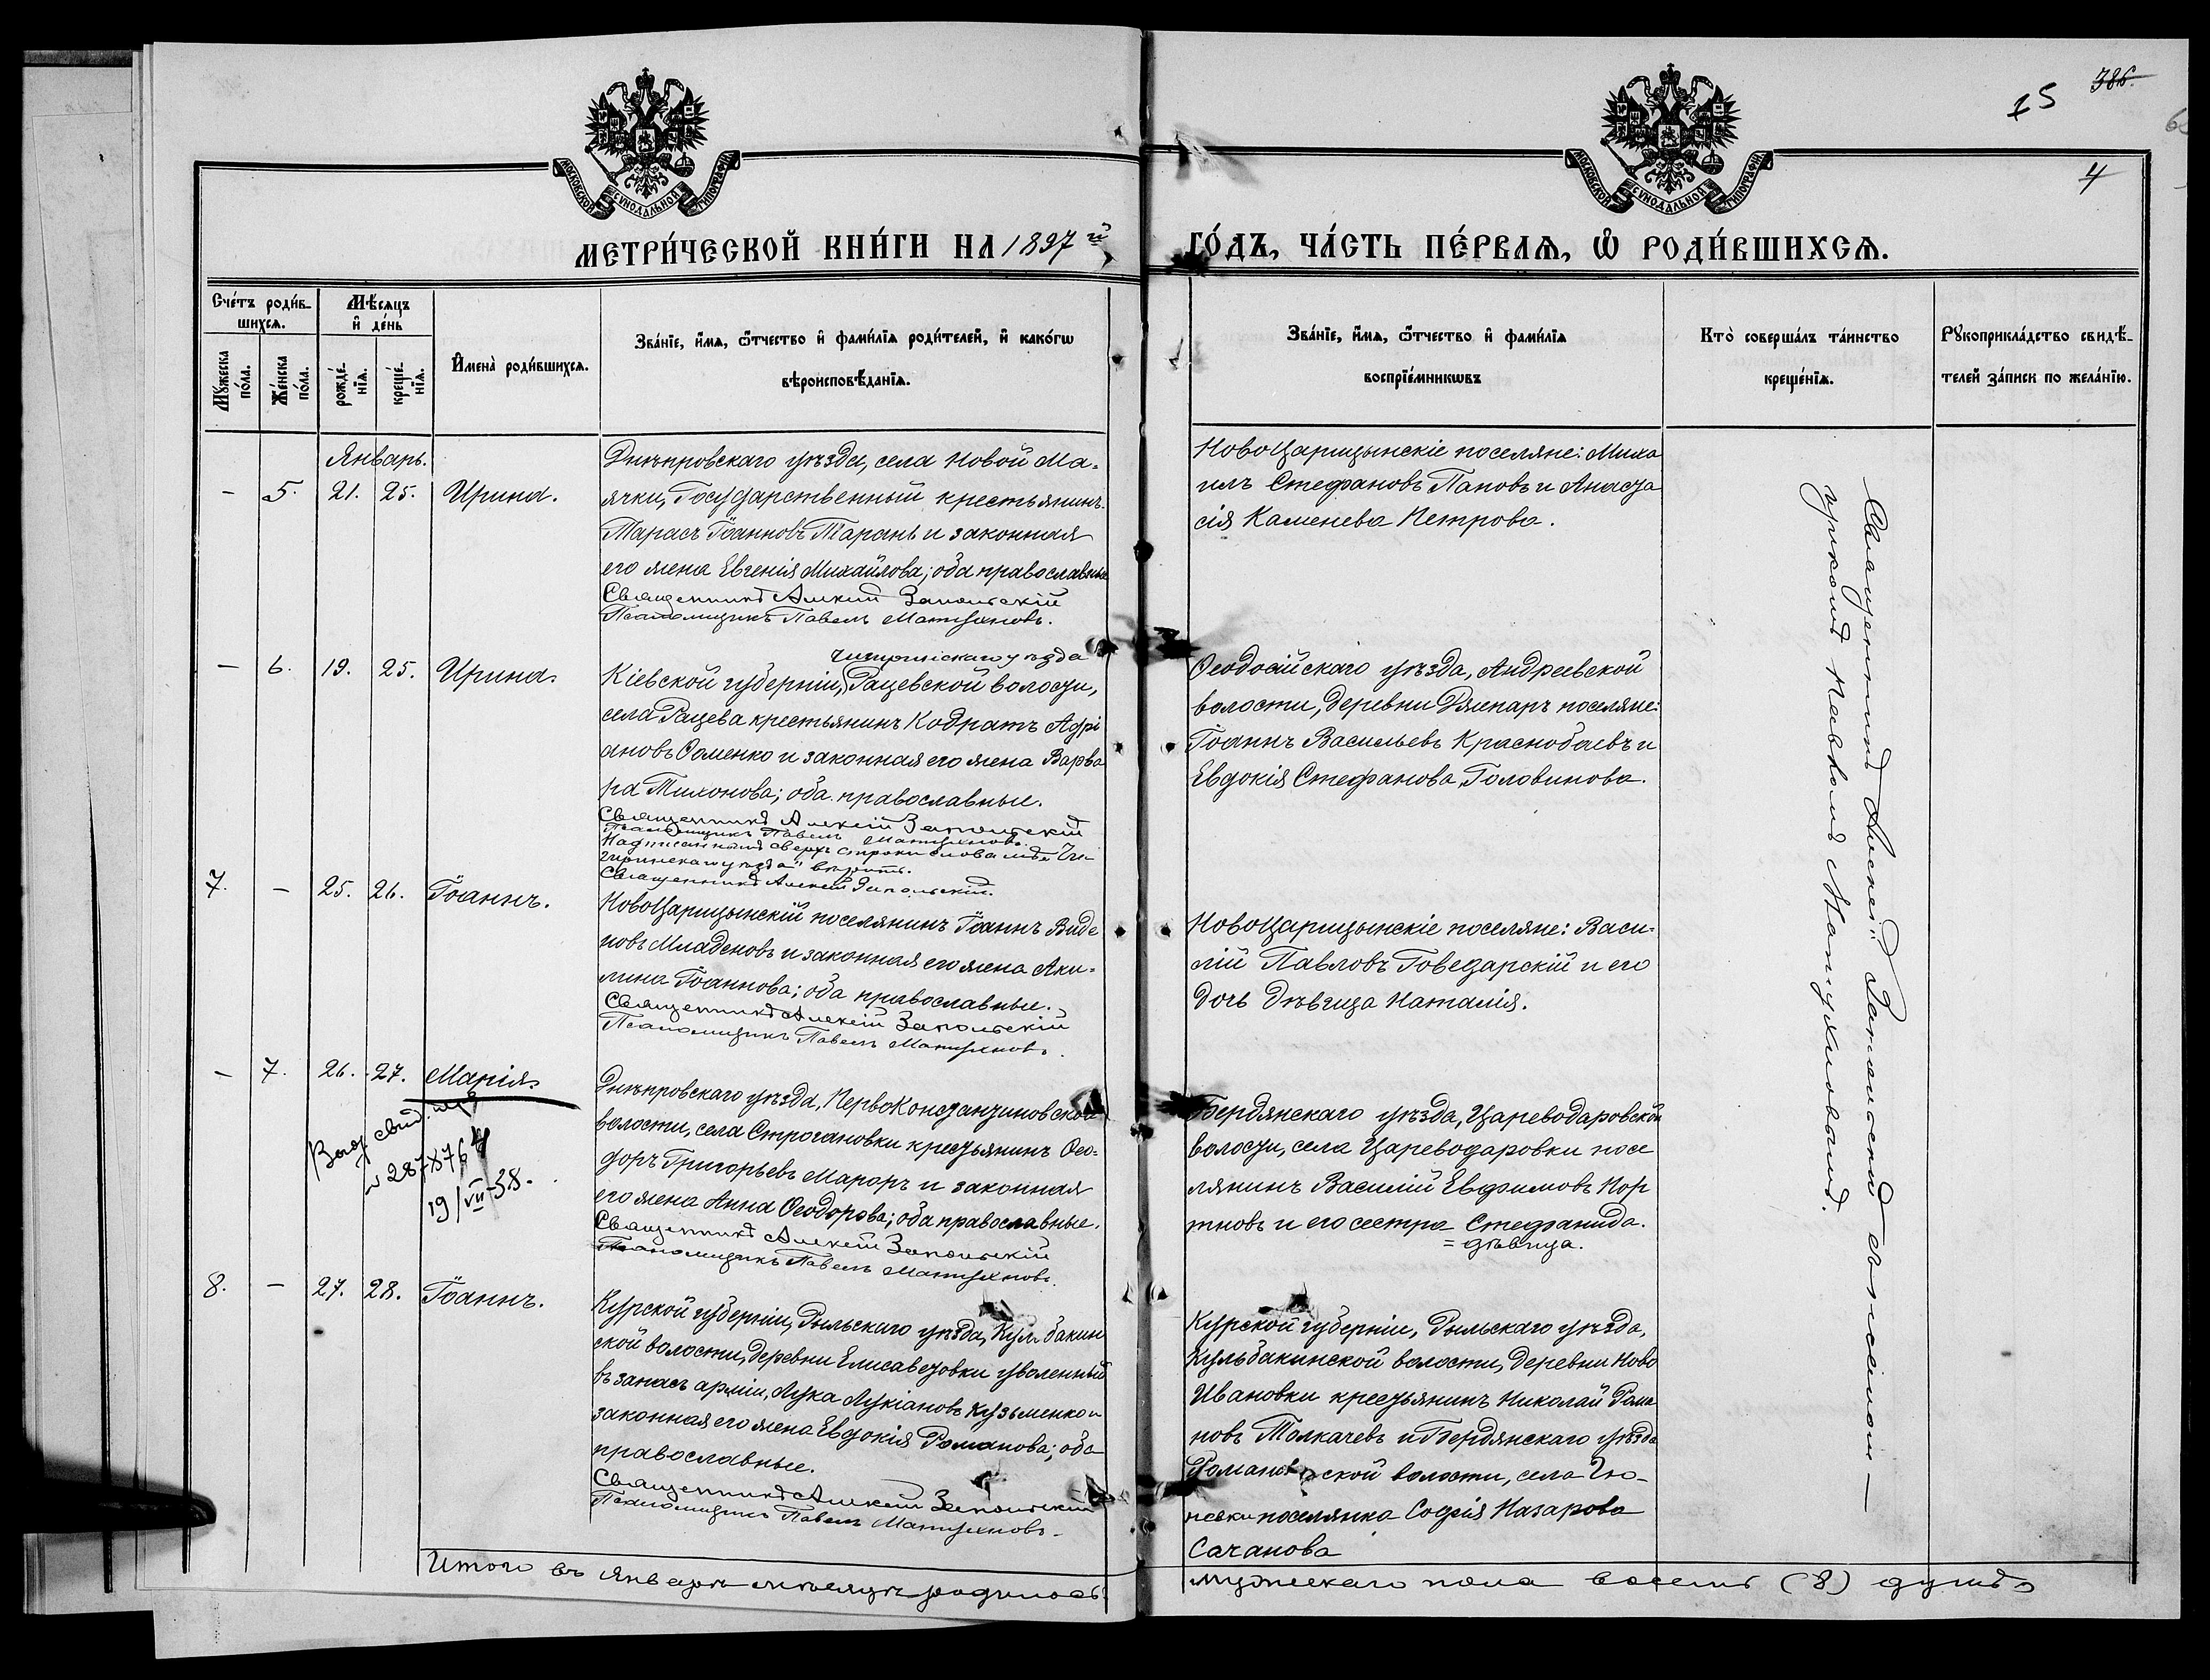 386.
15
4
МОСКОВСКОЙ СѴНОДАЛЬНОЙ ТИПОГРАФІИ
МОСКОВСКОЙ СѴНОДАЛЬНОЙ ТИПОГРАФІИ
МЕТРИ́ЧЕСКОЙ КНИ́ГИ НА 1897й ГО́ДЪ, ЧА́СТЬ ПЕ́РВАѦ, Ѡ҆ РОДИ́ВШИХСѦ.
Сче́тъ роди́в-
шихсѧ.
Мѣ́сяцъ
и҆ де́нь
Мꙋ́жеска
по́ла.
Же́нска
по́ла.
рожде́-
нїѧ.
креще́-
нїѧ.
И҆мена̀ роди́вшихсѧ.
Зва́нїе, и҆́мѧ, ѻ҆́тчество и҆ фами́лїѧ роди́телей, и҆ како́гѡ
вѣроисповѣ́данїѧ.
Зва́нїе, и҆́мѧ, ѻ҆́тчество и҆ фами́лїѧ
воспрїе́мникѡвъ
Кто̀ соверша́лъ та́инство
креще́нїѧ.
Рꙋкоприкла́дство свидѣ́-
телей за́писи по жела́нїю.
Январь.
- 5. 21. 25. Ирина.
Днѣпровскаго уѣзда, села Новой Ма-
ячки, Государственный крестьянинъ
Тарасъ Іоанновъ Таранъ и законная
его жена Евгенія Михайлова; оба православные
Священникъ Алексій Запольскій
Псаломщикъ Павелъ Матухновъ.
НовоЦарицынскіе поселяне: Миха
илъ Стефановъ Паповъ и Анаста
сія Каменева Петрова.
- 6. 19. 25. Ирина.
Чигиринскаго уѣзда
Кіевской губерніи, Рацевской волости,
села Рацева крестьянинъ Кодратъ Адрі
ановъ Фоменко и законная его жена Варва
ра Тихонова; оба православные.
Священникъ Алексій Запольскій
Псаломщикъ Павелъ Матухновъ.
Надписаннымъ сверхъ строки словамъ „Чи-
гиринскаго уѣзда" вѣрить.
Священникъ Алексій Запольскій.
Ѳеодосійскаго уѣзда, Андреевской
волости, деревни Джепаръ поселяне:
Іоаннъ Васильевъ Краснобаевъ и
Евдокія Стефанова Головинова.
7. - 25. 26. Іоаннъ.
НовоЦарицынскій поселянинъ Іоаннъ Виде
новъ Младеновъ и законная его жена Аки-
лина Іоаннова; оба православные.
Священникъ Алексій Запольскій
Псаломщикъ Павелъ Матухновъ.
НовоЦарицынскіе поселяне: Васи-
лій Павловъ Говедарскій и его
дочь дѣвица Наталія.
- 7. 26. 27. Марія.
Выд. свид.
№ 2878764
19/VII-38.
Днѣпровскаго уѣзда, ПервоКонстантиновской
волости, села Строгановки крестьянинъ Ѳео-
доръ Григорьевъ Мароръ и законная
его жена Анна Ѳеодорова; оба православные.
Священникъ Алексій Запольскій
Псаломщикъ Павелъ Матухновъ.
Бердянскаго уѣзда, Цареводаровской
волости, села Цареводаровки посе
лянинъ Василій Евфимовъ Пор
тновъ и его сестра Стефанида.
= дѣвица.
8. - 27. 28. Іоаннъ.
Курской губерніи, Рыльскаго уѣзда, Кульбакин
ской волости, деревни Елисаветовки уволенный
въ запасъ арміи, Лука Лукіановъ Кузьменко и
законная его жена Евдокія Романова; оба
православные.
Священникъ Алексій Запольскій
Псаломщикъ Павелъ Матухновъ.
Курской губерніи, Рыльскаго уѣзда,
Кульбакинской волости, деревни Ново
Ивановки крестьянинъ Николай Рома
новъ Толкачевъ и Бердянскаго уѣзда
Романовской волости, села Гю-
невки поселянка Софія Назарова
Саханова
Священникъ Алексій Запольскій съ псаломщ—
щикомъ Павломъ Матухновымъ.
Итого въ Январѣ мѣсяцѣ родилось: мужескаго пола восемь (8) душъ